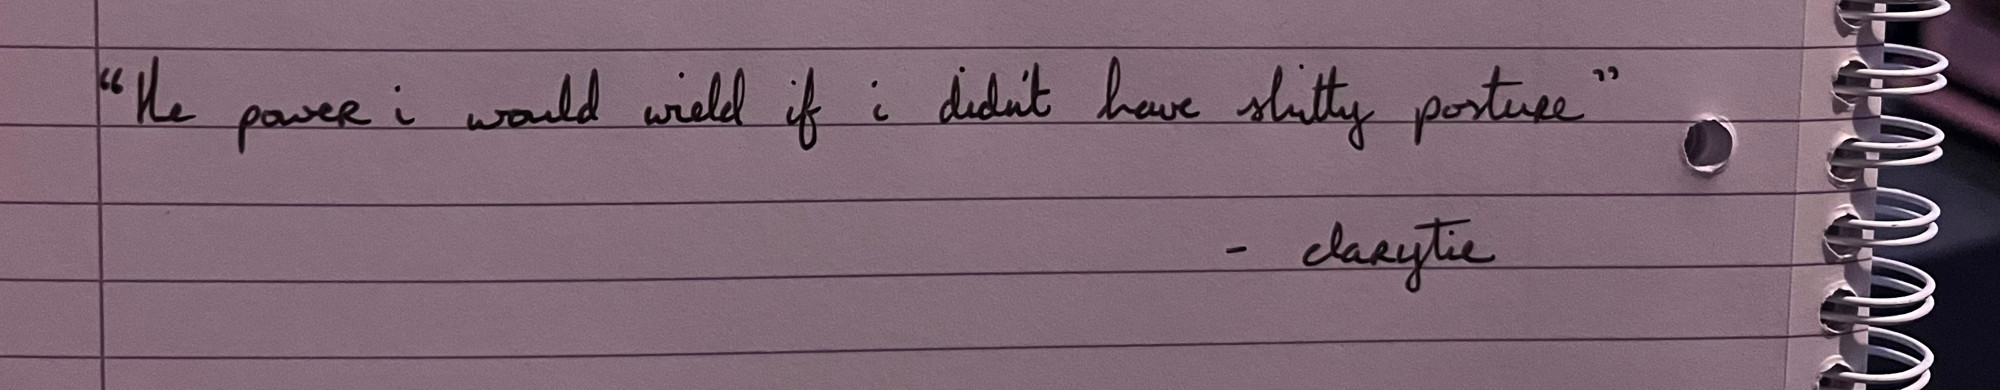 “the power i would wield if i didn't have shitty posture”
- clarytie